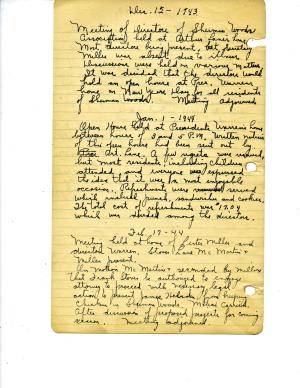 Dec. 12 - 1943
Meeting of directors of Sherman Woods
Association held at Arthur Lane's home
Most directors being present, but
Miller was absent due to illness.
Discussions were held on various matters
It was decided that the directors would
hold an open house at Pres. Warren
home on New Years Day for all residents
of Sherman Woods. Meeting adjourned
Jan. 1 - 1944
Open House held at President Warren's home
between hours of 2 and 5 P.M. Written notices
of the open house had been sent out by
Art. Lane. A few regrets were received,
but most residents, including children
attended and everyone expressed
the idea that it was a most enjoyable
occasion. Refreshments were served
which included punch, sandwiches and cookies.
The total cost of refreshments was
which was divided among the directors.
Feb. 17 - 44
Meeting held at home of Miller and
directors Warren, Stover, Lane, Mc Martin &
Miller present.
On motion Mc Martin & seconded by Miller
that Frank Stover be authorized to engage
attorney to proceed with necessary legal
action to prevent James from keeping
chickens in Sherman Woods. Motion Carried.
After discussion of proposed projects for coming
season. meeting adjourned.